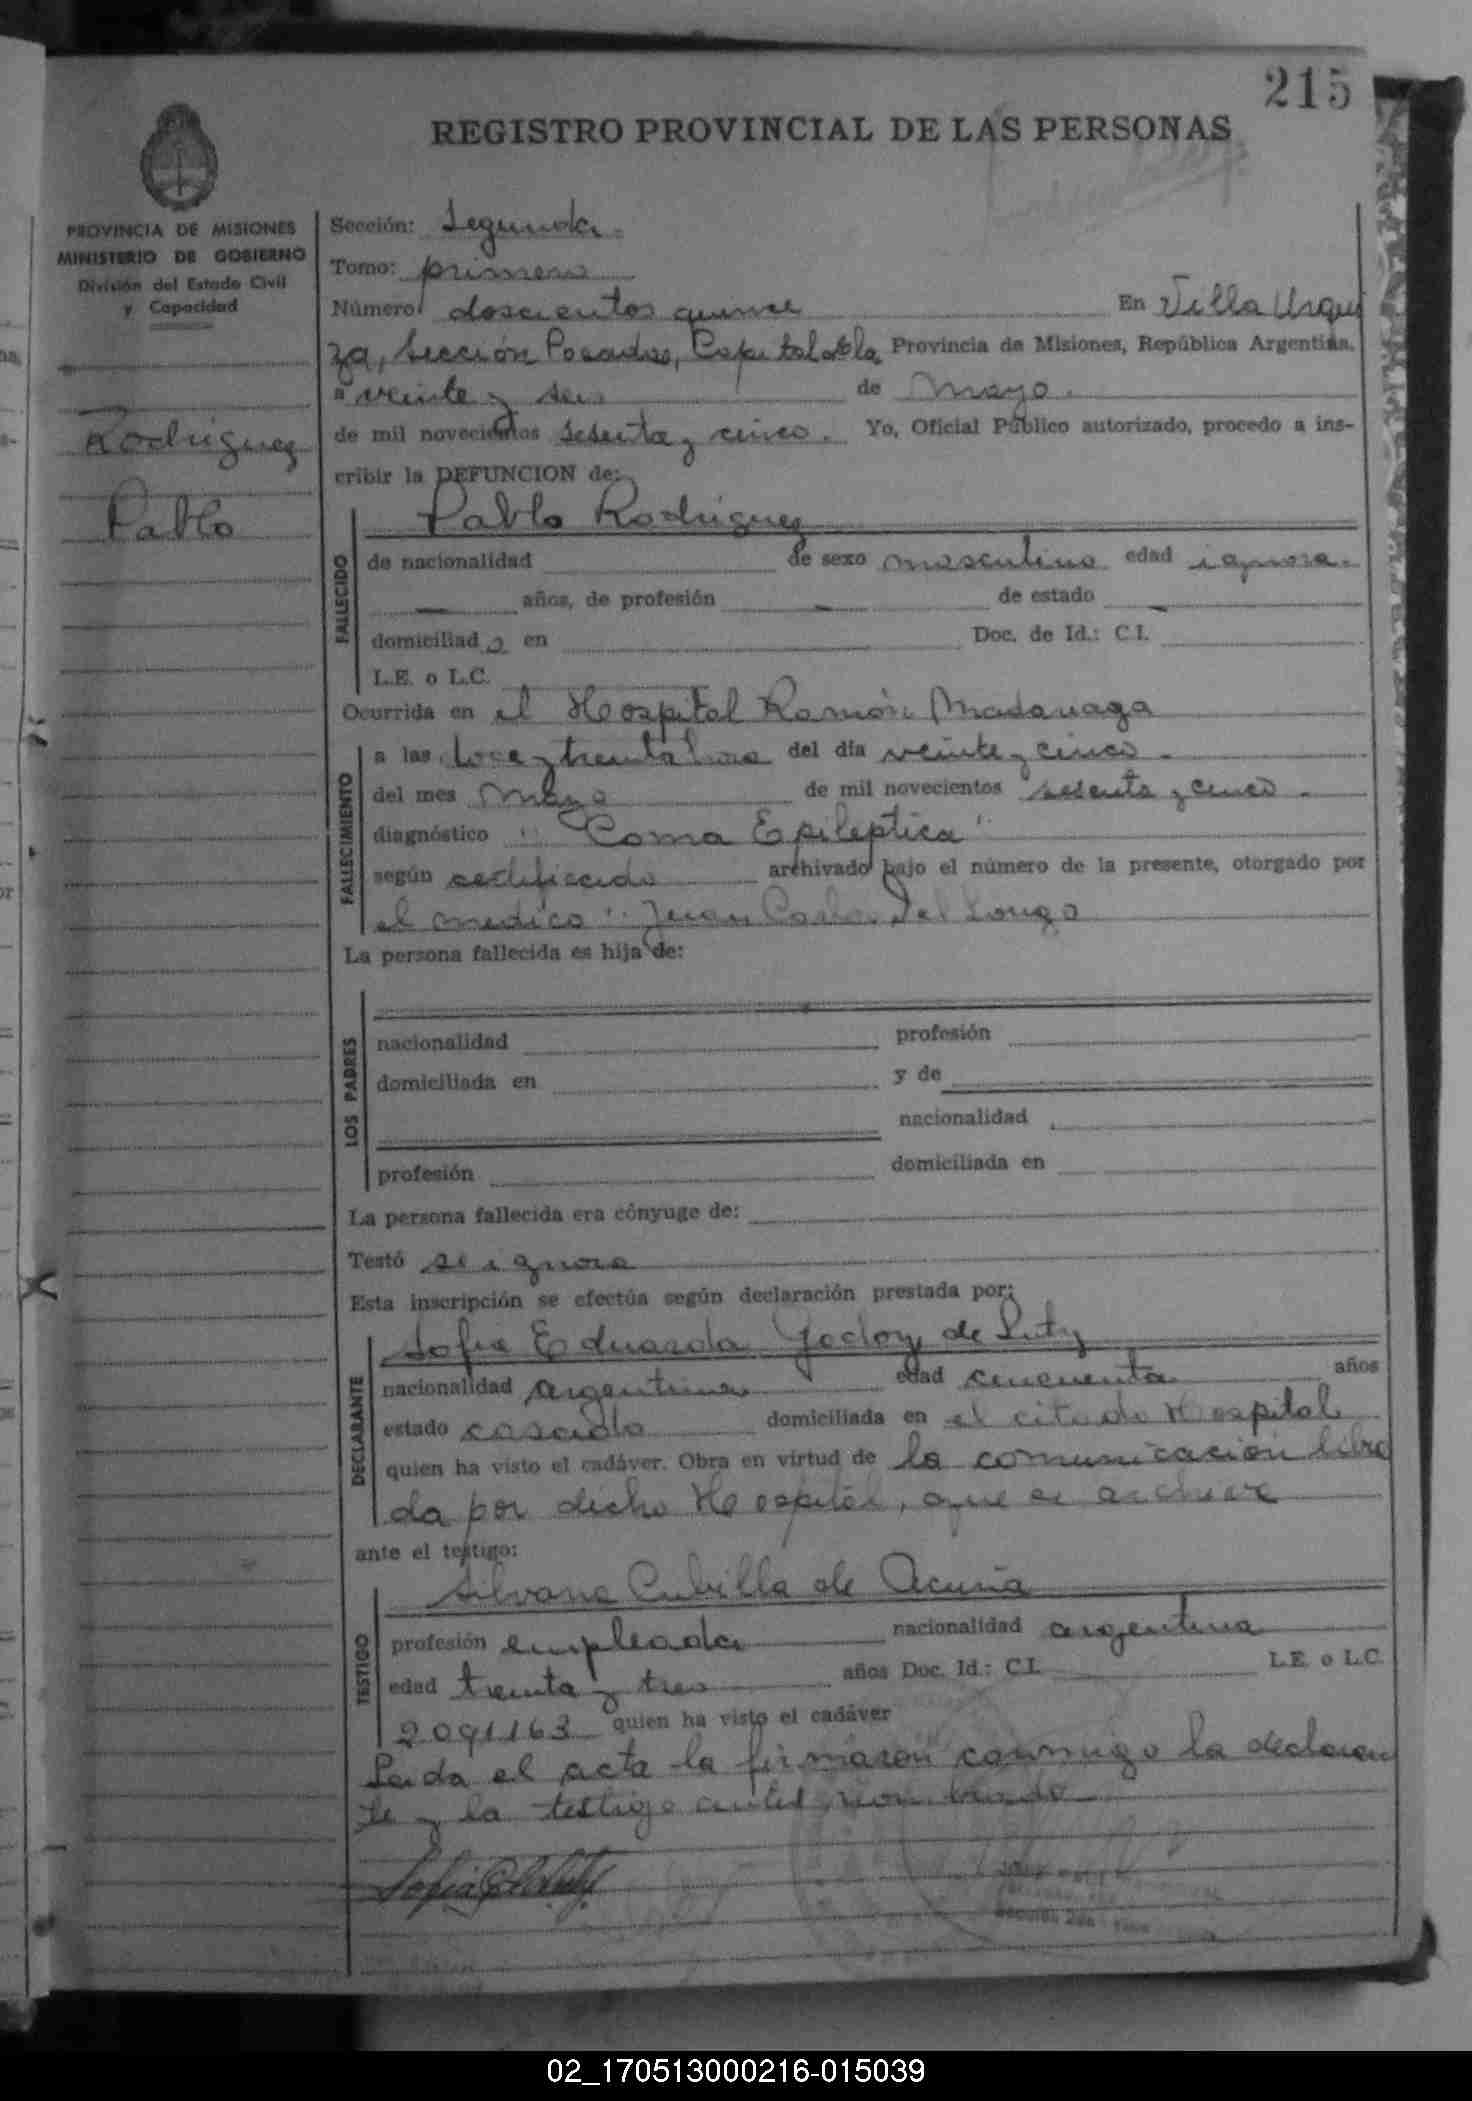 215
REGISTRO PROVINCIAL DE LAS PERSONAS
PROVINCIA DE MISIONES
MINISTERIO DE GOBIERNO
División del Estado Civil
y Capacidad
Rodriguez
Pablo
Sección: Segunda.
Tomo: primero
Número doscientos quince En Villa Urqui
za, Sección Posadas, Capital de la Provincia de Misiones, República Argentina,
a veinte y seis de Mayo.
de mil novecientos sesenta y cinco. Yo, Oficial Público autorizado, procedo a ins-
cribir la DEFUNCION de:
Pablo Rodriguez
FALLECIDO
de nacionalidad de sexo masculino edad ignora.
— años, de profesión — de estado —
domiciliado en Doc. de Id.: C.I.
L.E. o L.C.
Ocurrida en el Hospital Ramón Madariaga
FALLECIMIENTO
a las doce y treinta hora del día veinte y cinco.
del mes Mayo de mil novecientos sesenta y cinco.
diagnóstico "Coma Epileptica"
según certificado archivado bajo el número de la presente, otorgado por
el medico: Juan Carlos Del Longo
La persona fallecida es hija de:
LOS PADRES
nacionalidad profesión
domiciliada en y de
nacionalidad
profesión domiciliada en
La persona fallecida era cónyuge de:
Testó se ignora
Esta inscripción se efectúa según declaración prestada por:
DECLARANTE
Sofia Eduarda Godoy de
nacionalidad argentina edad cincuenta años
estado casada domiciliada en el citado Hospital
quien ha visto el cadáver. Obra en virtud de la comunicación libra
da por dicho Hospital, que se archiva
ante el testigo:
TESTIGO
Silvana Cubilla de Acuña
profesión empleada nacionalidad argentina
edad treinta y tres años Doc. Id.: C.I. L.E. o L.C.
2091163 quien ha visto el cadáver
Leida el acta la firmaron conmigo la declaran
te y la testigo antes nombrado
02_170513000216-015039